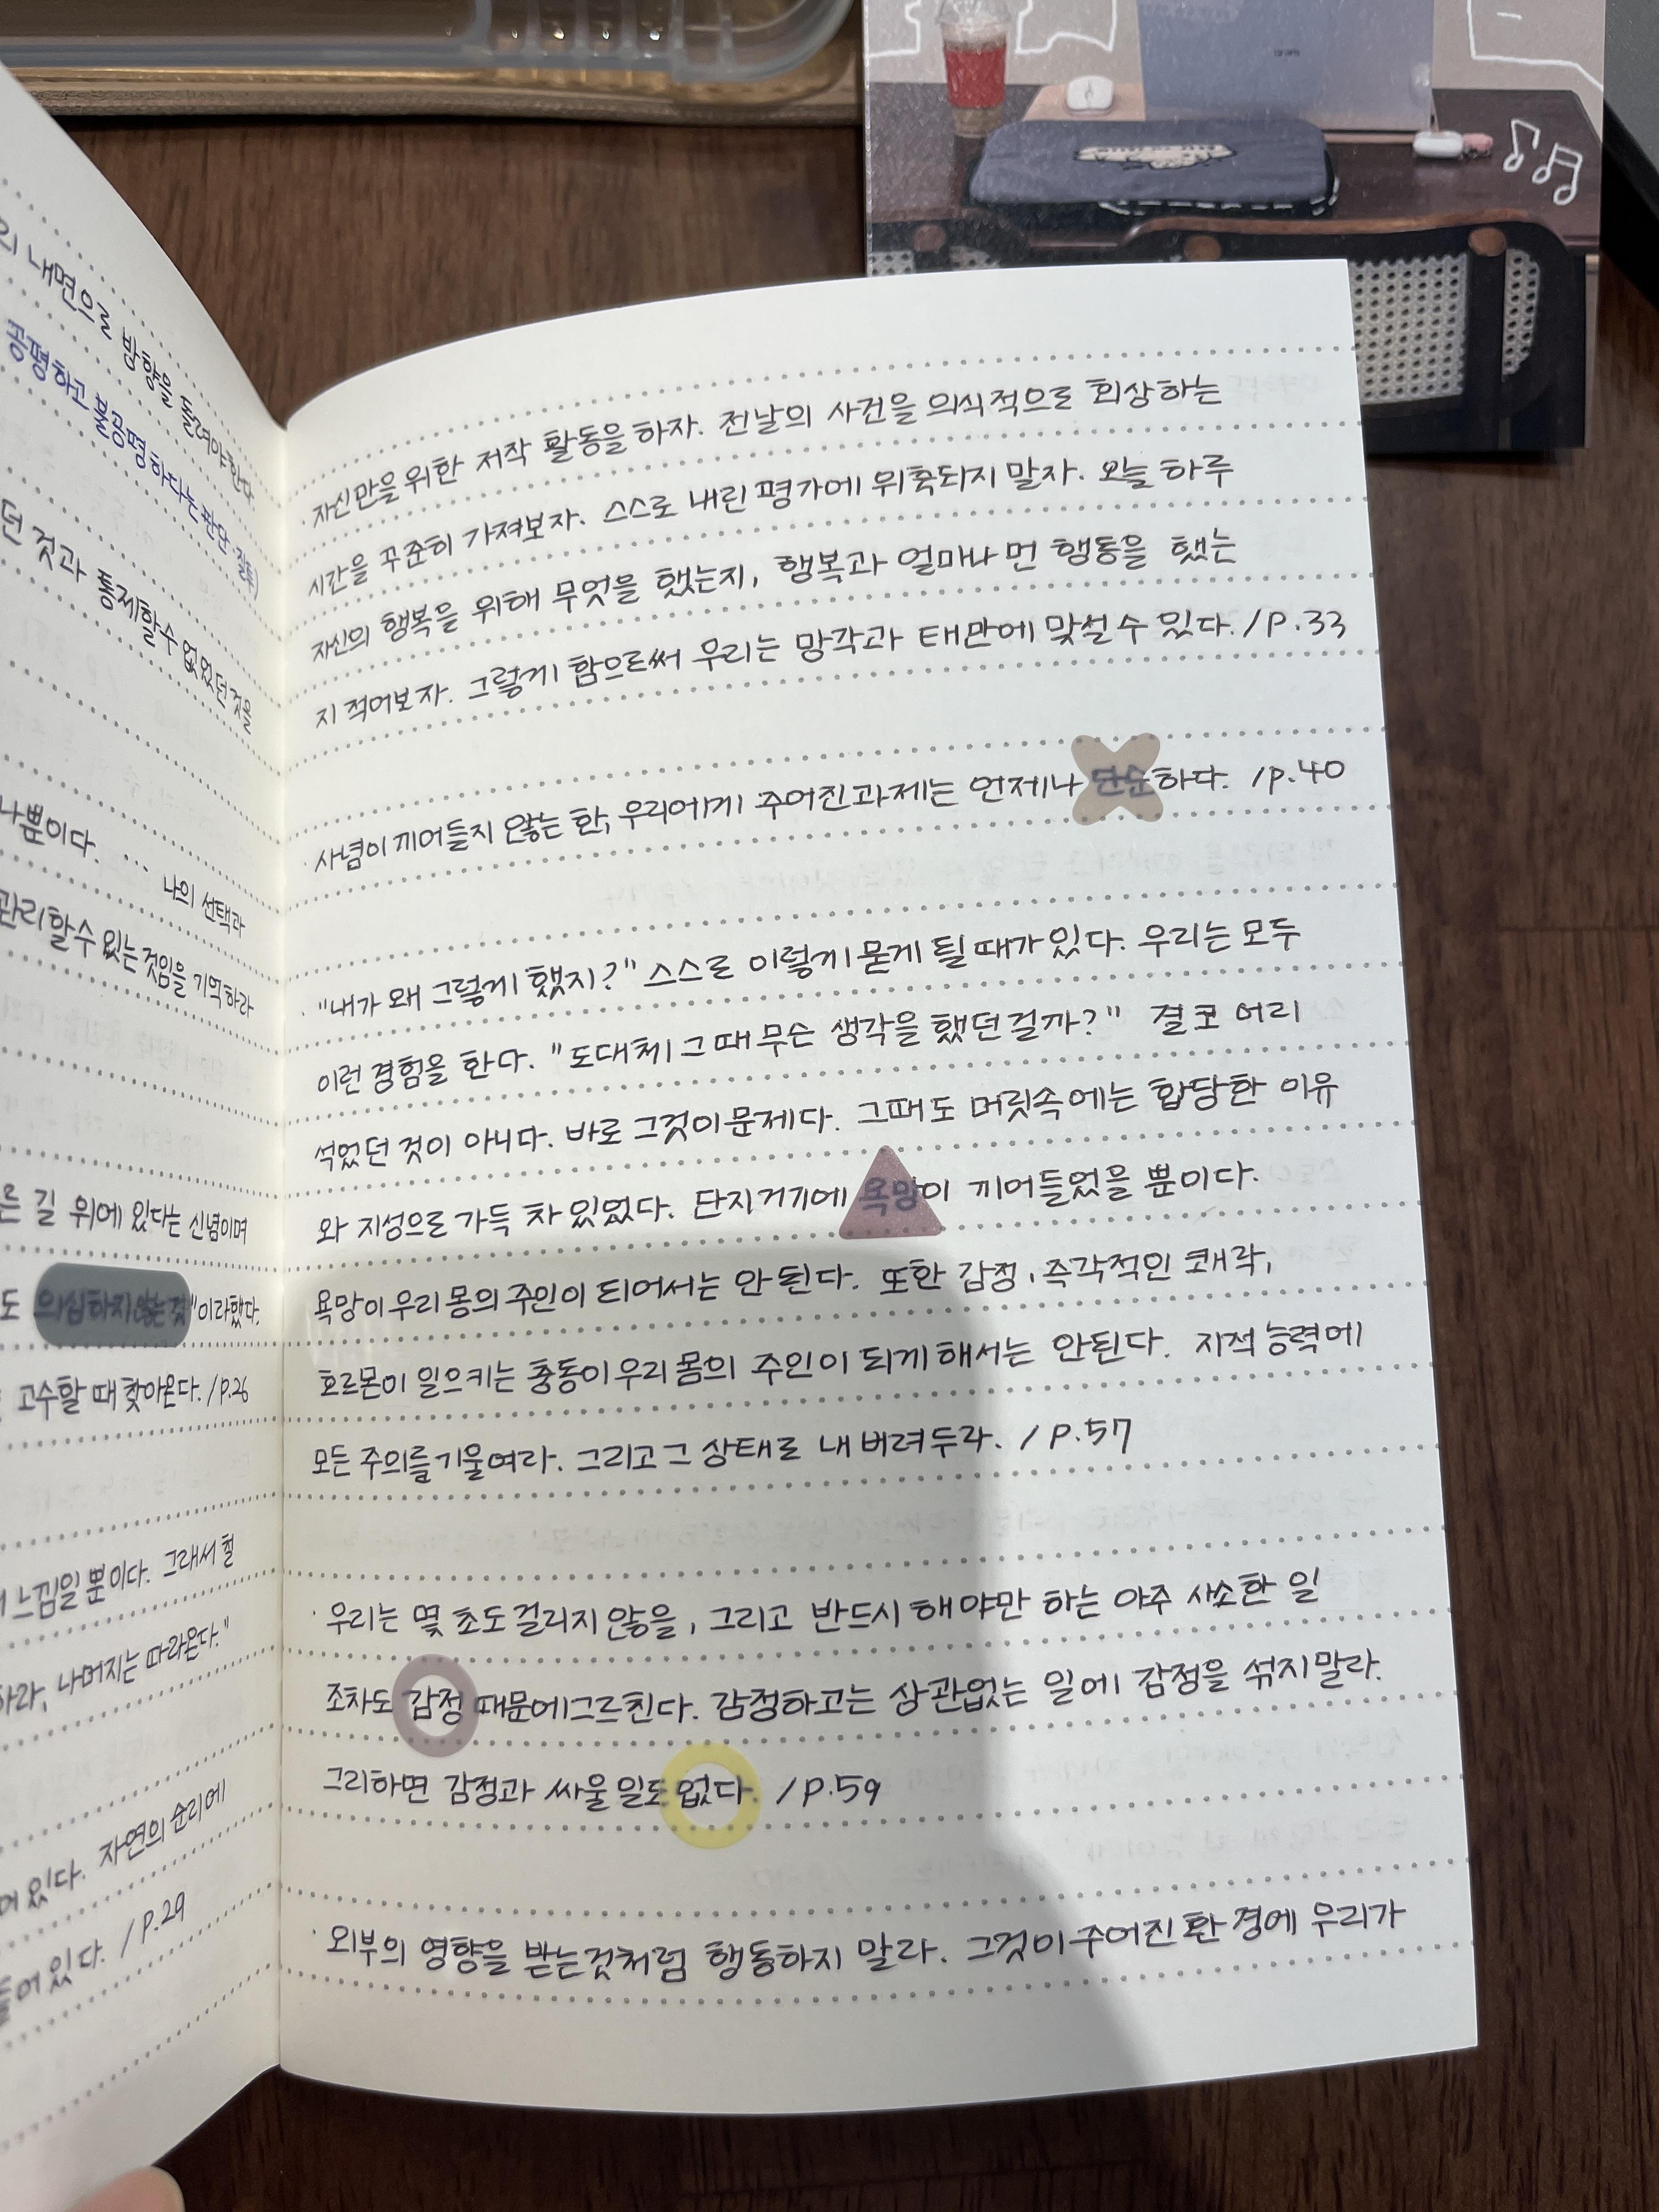 의 내면으로 방향을 돌려야한다
공평하고 불공평하다는 판단
던 것과 통제할수 없었던 것을
나뿐이다. ... 나의 선택과
관리할수 있는 것임을 기억하라
른 길 위에 있다는 신념이며
도 의심하지 않는 것"이라했다.
고수할 때 찾아온다. /P.26
느낌일 뿐이다. 그래서 철
하라, 나머지는 따라온다."
어 있다. 자연의 순리에
들어 있다. /P.29
· 자신만을 위한 저작 활동을 하자. 전날의 사건을 의식적으로 회상하는
시간을 꾸준히 가져보자. 스스로 내린 평가에 위축되지 말자. 오늘 하루
자신의 행복을 위해 무엇을 했는지, 행복과 얼마나 먼 행동을 했는
지 적어보자. 그렇게 함으로써 우리는 망각과 태만에 맞설 수 있다. /P.33
· 사념이 끼어들지 않는 한, 우리에게 주어진 과제는 언제나 단순하다. /p.40
· "내가 왜 그렇게 했지?" 스스로 이렇게 묻게 될 때가 있다. 우리는 모두
이런 경험을 한다. "도대체 그 때 무슨 생각을 했던걸까?" 결코 어리
석었던 것이 아니다. 바로 그것이 문제다. 그때도 머릿속에는 합당한 이유
와 지성으로 가득 차 있었다. 단지 거기에 욕망이 끼어들었을 뿐이다.
욕망이 우리 몽의 주인이 되어서는 안 된다. 또한 감정, 즉각적인 쾌락,
호르몬이 일으키는 충동이 우리 몸의 주인이 되게 해서는 안된다. 지적 능력에
모든 주의를 기울여라. 그리고 그 상태로 내 버려두라. / P.57
· 우리는 몇 초도 걸리지 않을, 그리고 반드시 해야만 하는 아주 사소한 일
조차도 감정 때문에 그르친다. 감정하고는 상관없는 일에 감정을 섞지말라.
그리하면 감정과 싸울 일도 없다. /P.59
· 외부의 영향을 받는것처럼 행동하지 말라. 그것이 주어진 환경에 우리가